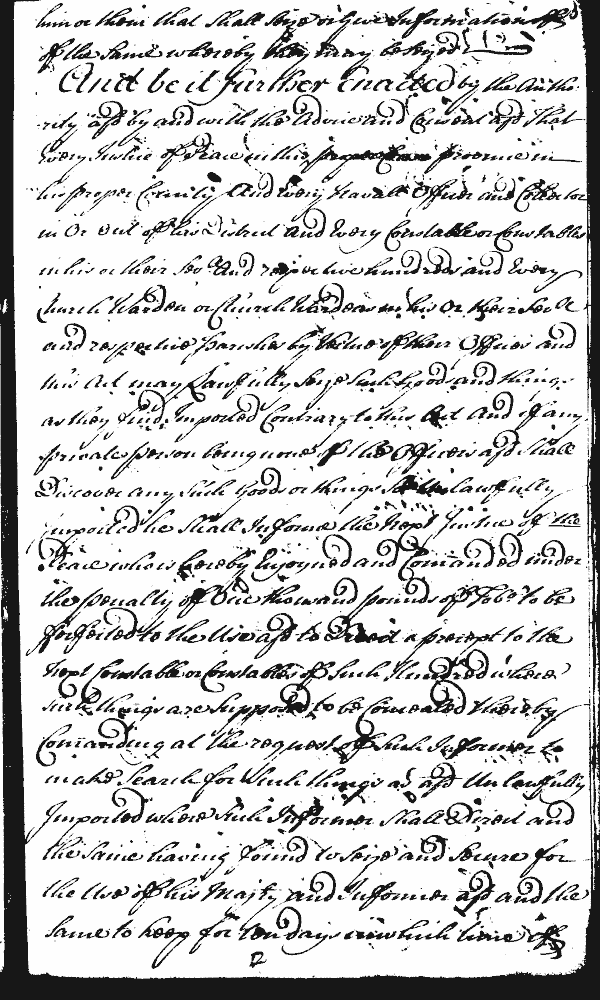 him or them that Shall Seize or Give Information of
of the Same whereby they may be Seized
And be it further Enacted by the Autho
rity afd by and with the Advice and Consent afd That
Every Justice of Peace in this province in
his proper County And Every Navall Officer and Collector
in Or out of his District and Every Constable or Constables
in his or their Sevll And respective hundreds and Every
Church Warden or Church Wardens in his Or their Sevll
and respective Parishes by Virtue of their Offices and
this Act may Lawfully Seize Such Good and things
as they find Imported Contrary to this Act And if any
private person being none of the Officers afd Shall
Discover any Such Good or things unlawfully
imported he Shall Informe the Next Justice of the
Peace who is hereby Enjoyned and Comanded under
the penalty of One thousand pounds of Tobo to be
forfeited to the Use afd to Direct a precept to the
Next Constable or Constables of Such Hundred where
such things are Supposed to be Concealed thereby
Comanding at the request of Such Informer to
make Search for Such things as afd Unlawfully
Imported where Such Informer Shall Direct and
the Same having found to Seize and Secure for
the Use of his Majty and Informer afd and the
Same to keep for ten days in which time if